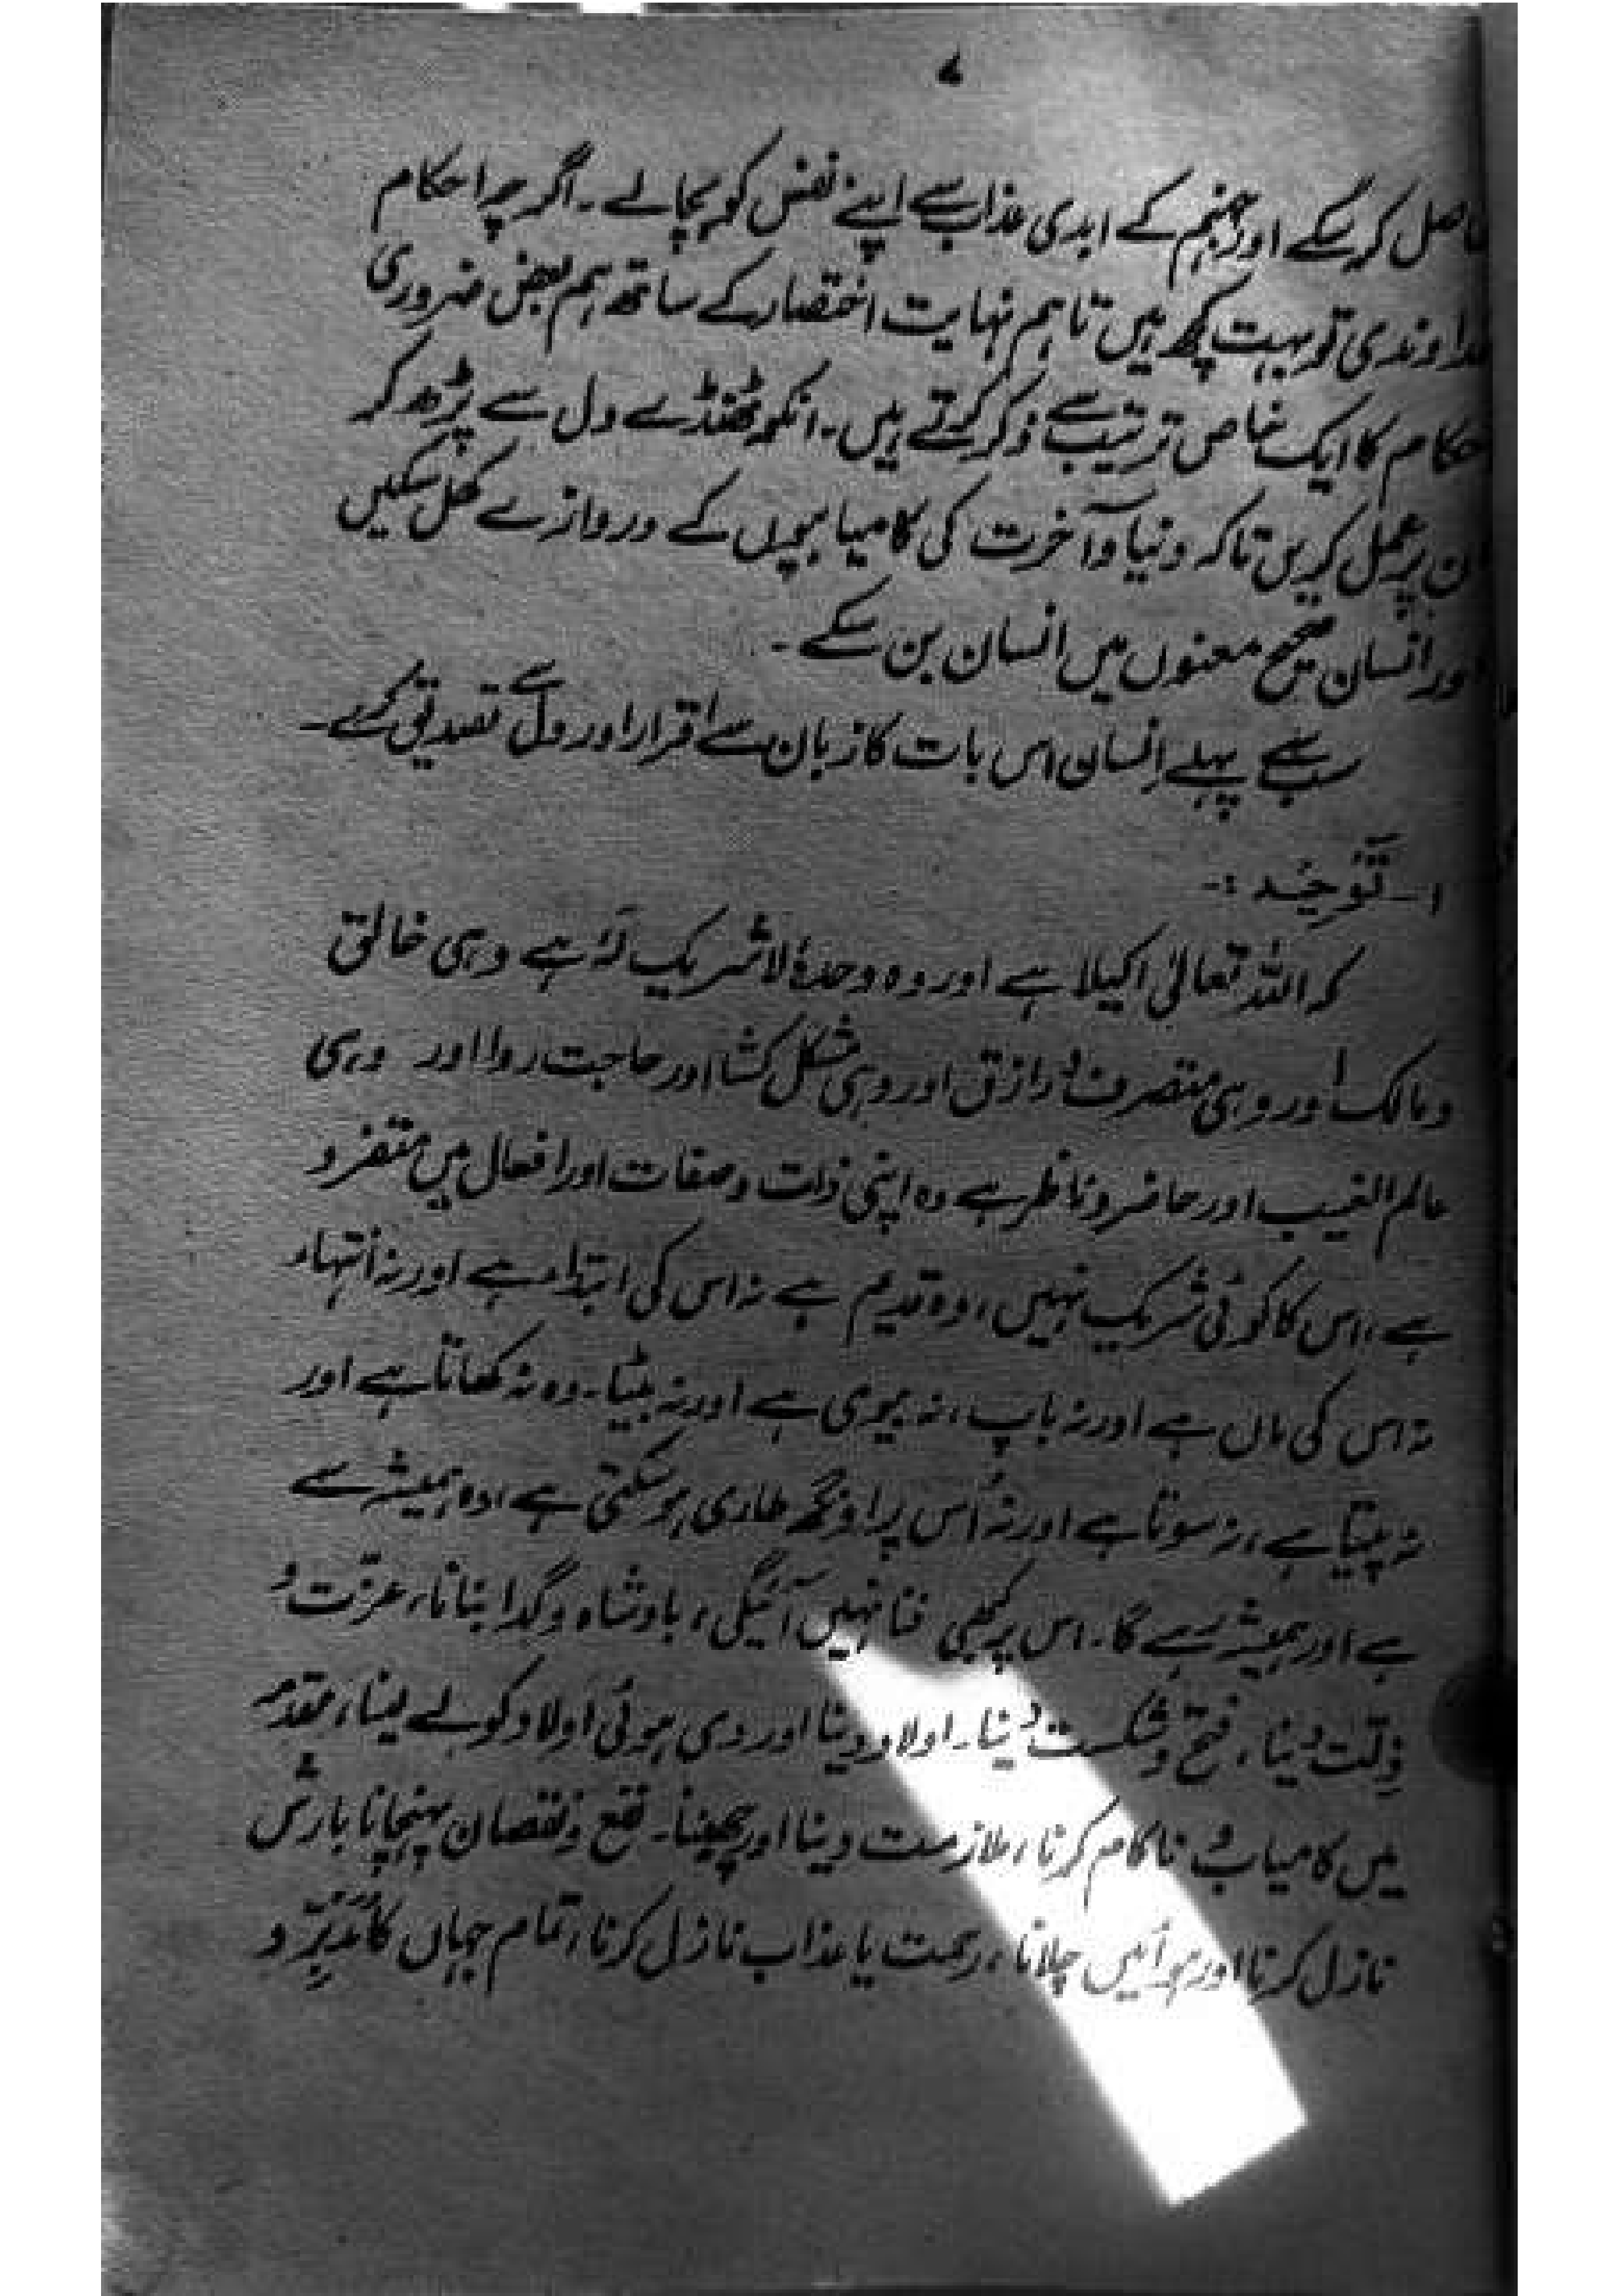 ۷
حاصل کر سکے اور جہنم کے ابدی عذاب سے اپنے نفس کو بچا لے ۔ اگرچہ احکام
خداوندی تو بہت کچھ ہیں تاہم نہایت اختصار کے ساتھ ہم بعض ضروری
احکام کا ایک خاص ترتیب سے ذکر کرتے ہیں ۔ انکو ٹھنڈے دل سے پڑھ کر
ان پر عمل کریں تاکہ دنیا و آخرت کی کامیابیوں کے دروازے کھل سکیں
اور انسان صحیح معنوں میں انسان بن سکے ۔
سب سے پہلے اِنسان اس بات کا زبان سے اقرار اور دل سے تصدیق کرے ۔
۱ ۔ تَوْحِیْد :۔
کہ اللہ تعالیٰ اکیلا ہے اور وہ وحدہٗ لا شریک لہٗ ہے وہی خالق
و مالک اور وہی متصرف و رازق اور وہی مشکل کشا اور حاجت روا اور وہی
عالم الغیب اور حاضر و ناظر ہے وہ اپنی ذات و صفات اور افعال میں متفرد
ہے ، اس کا کوئی شریک نہیں ، وہ قدیم ہے نہ اس کی ابتداء ہے اور نہ انتہاء
نہ اس کی ماں ہے اور نہ باپ ، نہ بیوی ہے اور نہ بیٹا ۔ وہ نہ کھاتا ہے اور
نہ پیتا ہے ، نہ سوتا ہے اور نہ اُس پر اونگھ طاری ہو سکتی ہے ، وہ ہمیشہ سے
ہے اور ہمیشہ رہے گا ۔ اس پر کبھی فنا نہیں آئیگی ، بادشاہ و گدا بنانا ، عزّت و
ذِلّت دینا ، فتح و شکست دینا ۔ اولاد دینا اور دی ہوئی اولاد کو لے لینا ، مقدمہ
میں کامیاب و ناکام کرنا ، ملازمت دینا اور چھیننا ۔ نفع و نقصان پہنچانا بارش
نازل کرنا اور ہوائیں چلانا ، رحمت یا عذاب نازل کرنا ، تمام جہاں کا مُدَبِّر و